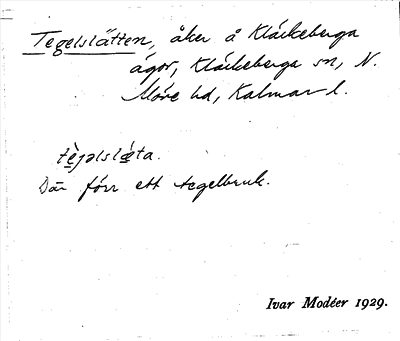 Tegelslätten, åker å Kläckeberga
ägor, Kläckeberga sn, N.
Möre hd, Kalmar l.
tèjəlslæ̀ta.
Där förr ett tegelbruk.
Ivar Modéer 1929.